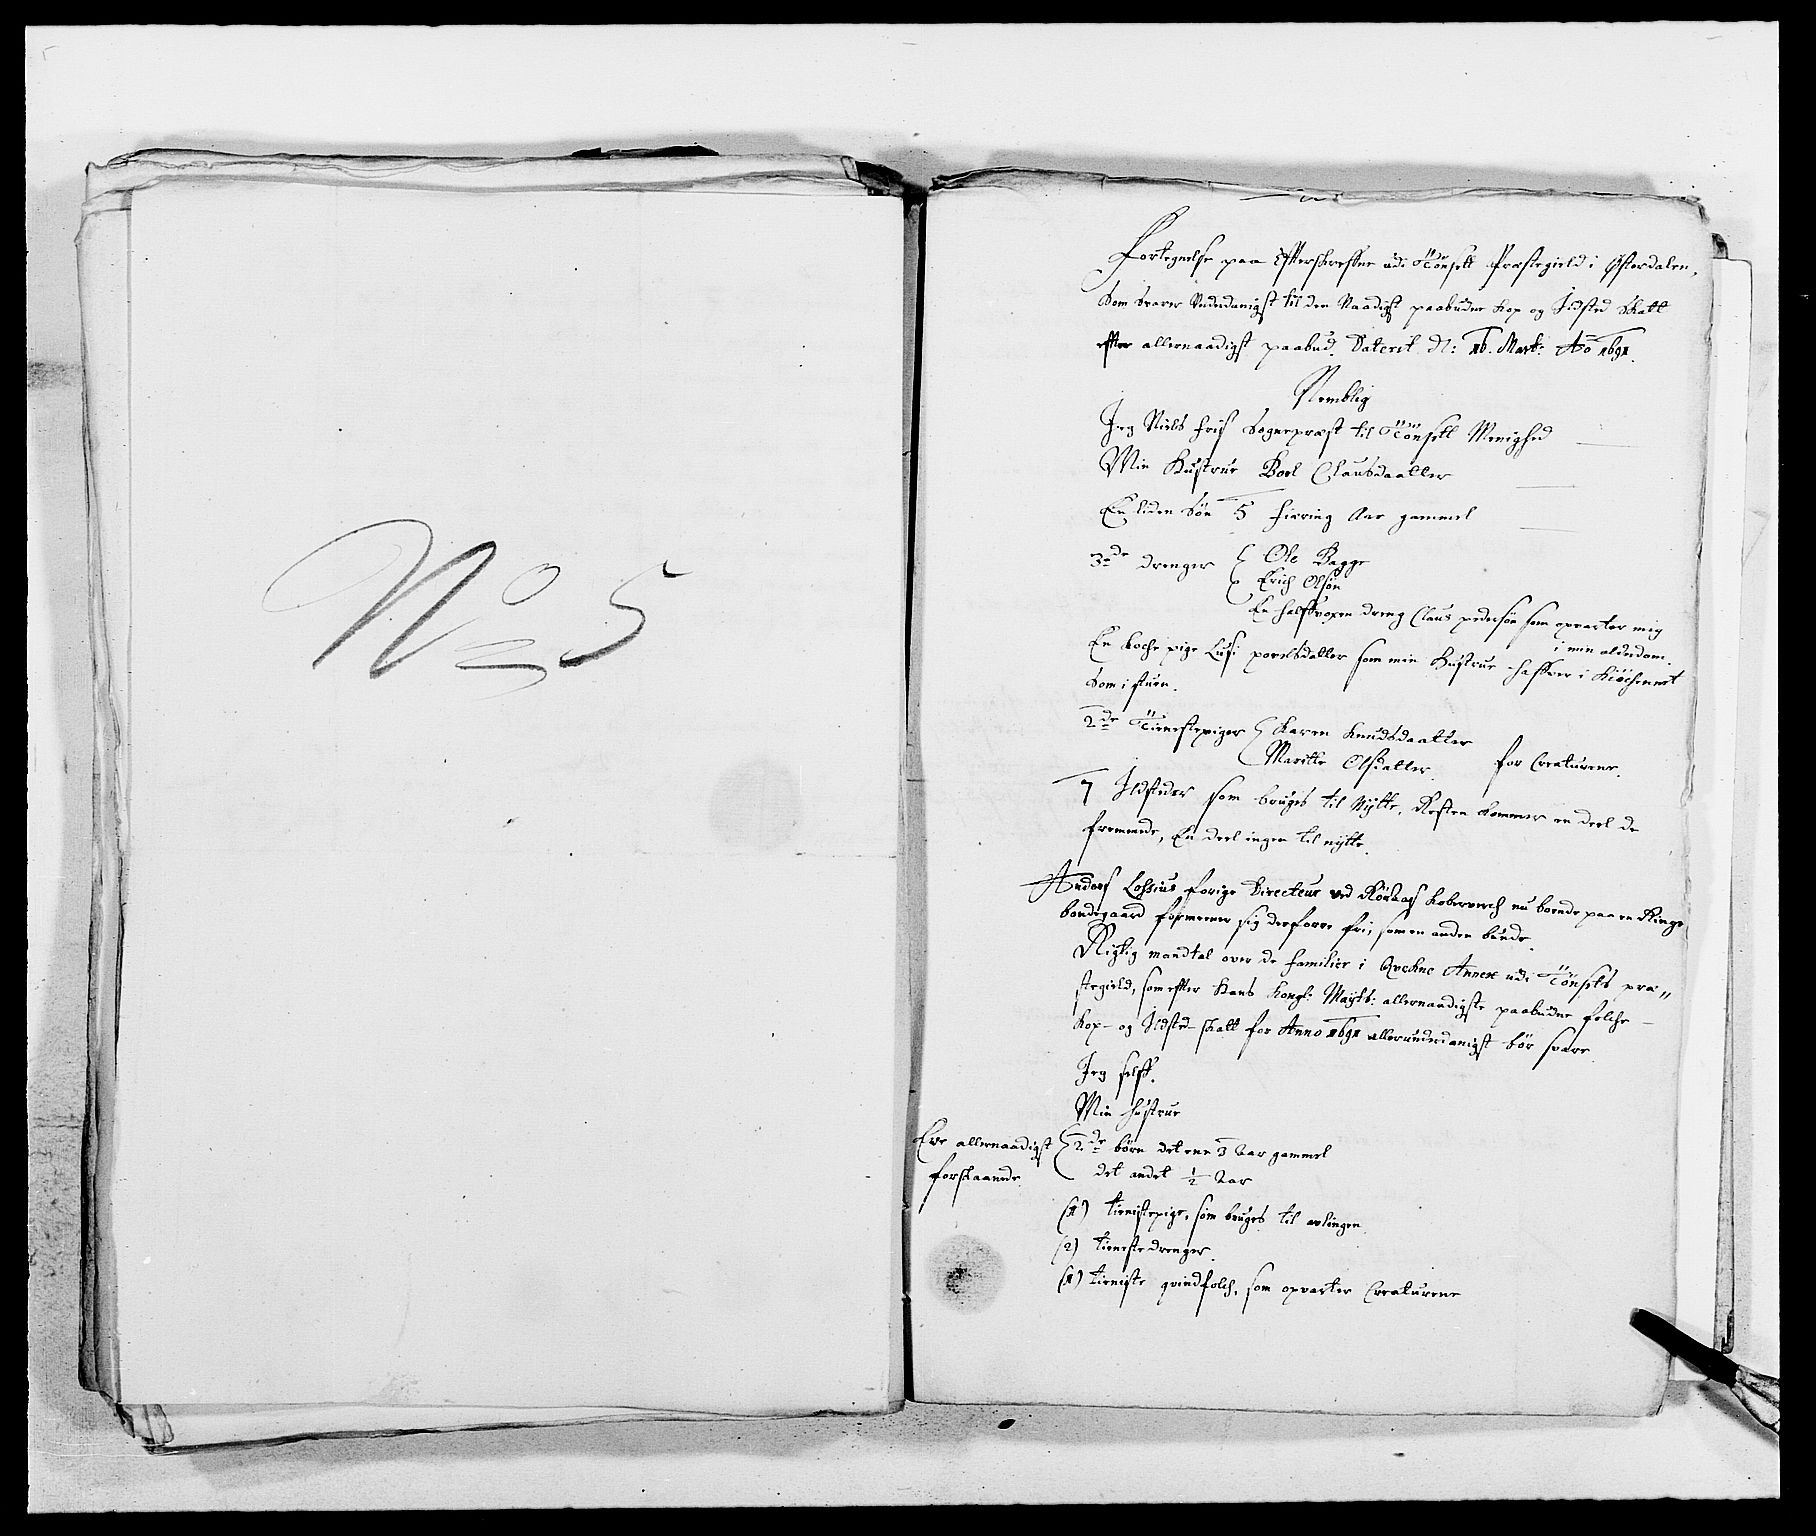 No 5
Fortegnelse paa Effterskreffne udi Tönsett Præstegield i Østerdalen,
Som svarer Underdanigst til den Naadigst paabudne Kop og Ildsted Skatt
efter allernaadigst paabud. Daterit d: 16. Mart: Ao 1691.
Nemblig
Jeg Niels Friis Sogneprest til Tönsett Menighed
Min Hustrue Boel Clausdaatter
En liden Sön 5 fierring Aar gammel
3de drenger { Ole Bagge
Erich Olsön
En halffvoxen dreng Claus pedersön som opvarter mig
i min alderdom.
En Koche pige Lusi povelsdatter som min Hustrue haffver i Kiöchenet
Som i stuen.
2de Tienestepiger { Karen Knudsdaatter
Maritte Olsdatter for Creaturene.
7 Ildsteder som bruges til Nytte, Resten kommer en deel de
fremmede, En deel ingen til nytte.
Anders Lossius forige Directeur ved Röraas Koberverch nu boende paa en Ringe
bondegaard formeener sig derforre fri, som en anden bunde.
Rigtig mandtal over de familier i Qvekne Annex udi Tönsets præ〃
stegield, som efter Hans Kongl: Mayts: allernaadigste paabudne folche-
Kop- og Ildsted-skatt for Anno 1691 allerunderdanigst bör svare.
Jeg selff.
Min hustrue
Ere allernaadigst
forskaanede.
{ 2de börn det ene 3 Aar gammel
det andet 1/2 Aar
(1) tienistepige, som bruges til avlingen
(2) tienestedrenger.
(1) tieniste qvindfolch, som opvarter Creaturene